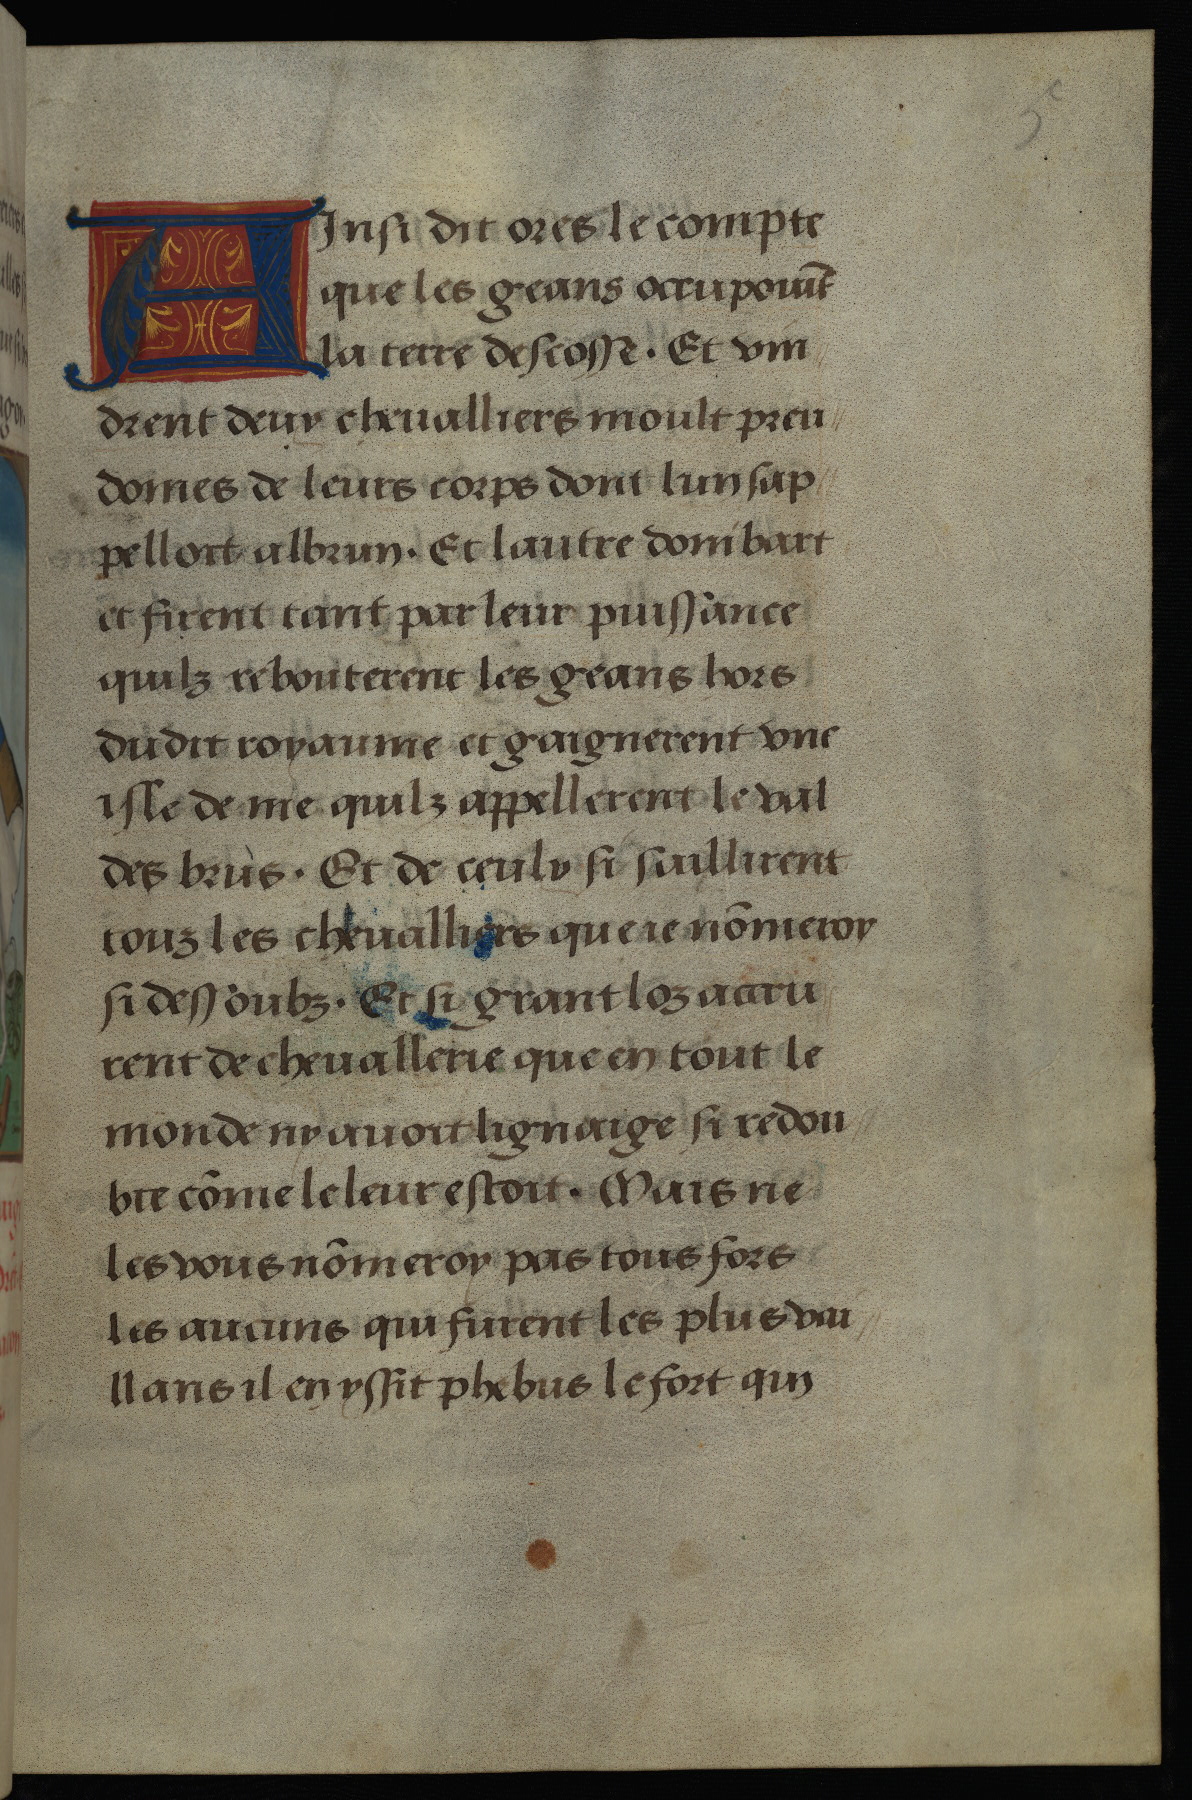 AJnsi dit ores le compte
que les geans occupoiẽt
la terre descosse. Et vin
drent deux chevalliers moult preu//
domes de leurs corps dont lun sap//
pelloit albrun. Et lautre dombart
et firent tant par leur puissance
quilz rebouterent les geans hors
dudit royaume et gaignerent vne
isle de me quilz appellerent le val
des bruns. Et de ceulx si saillirent
touz les cheualliers que ie nõmeroy
si dessoubz. Et si grant loz accru//
rent de cheuallerie que en tout le
monde ny auoit lignaige si redou//
bte cõme le leur estoit. Mais ne
les vous nõmeroy pas tous fors
les aucuns qui furent les plus vai//
llans il en yssit phebus le fort qui